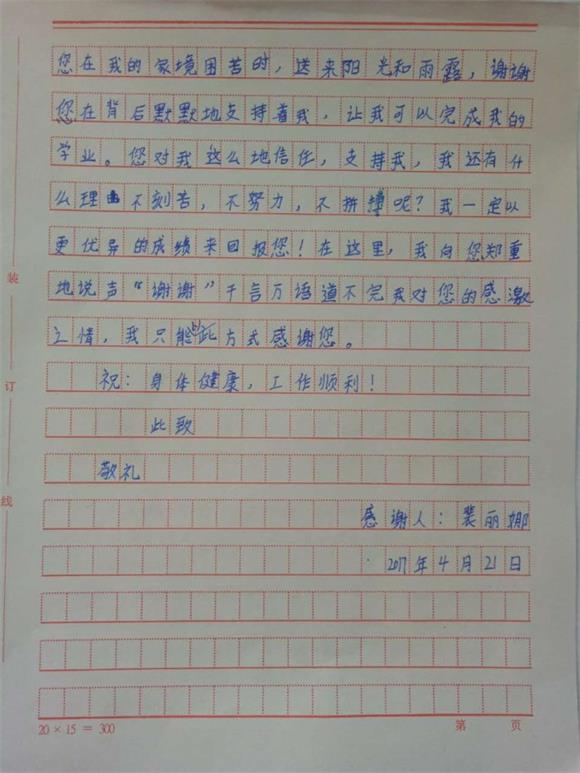 您在我的家境困苦时，送来阳光和雨露，谢谢
您在背后默默地支持着我，让我可以完成我的
学业。您对我这么地信任，支持我，我还有什
么理由不刻苦，不努力，不拼搏呢？我一定以
更优异的成绩来回报您！在这里，我向您郑重
地说声“谢谢”千言万语道不完我对您的感激
之情，我只能以此方式感谢您。
祝：身体健康，工作顺利！
此致
敬礼
感谢人：裴丽娜
2017年4月21日
装
订
线
20×15＝300
第 页